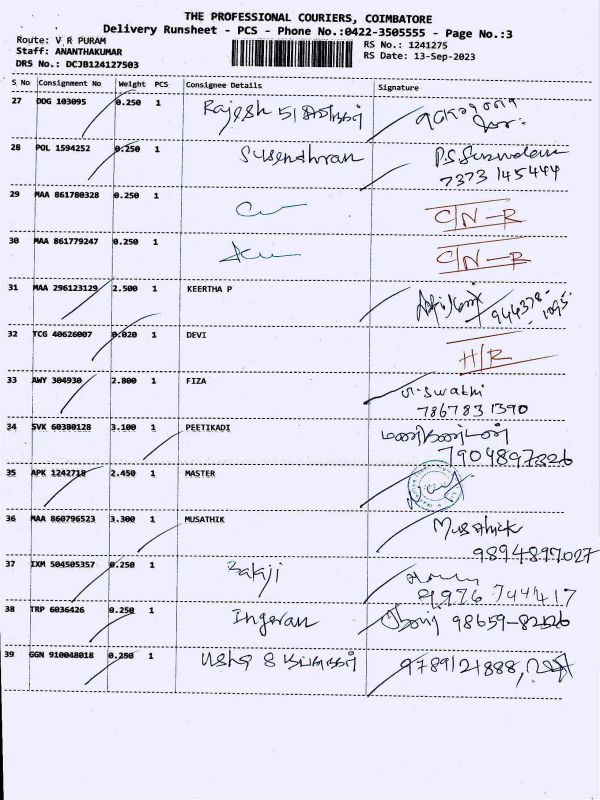 THE PROFESSIONAL COURIERS, COIMBATORE
Delivery Runsheet - PCS - Phone No.:0422-3505555 - Page No.:3
Route: V R PURAM
RS No.: 1241275
Staff: ANANTHAKUMAR
RS Date: 13-Sep-2023
DRS No.: DCJB124127503
S No Consignment No Weight PCS Consignee Details Signature
27 DDG 103095 0.250 1 Rajesh
28 POL 1594252 0.250 1 Susendhran
7373 145444
29 MAA 861780328 0.250 1 C/N-R
30 MAA 861779247 0.250 1 C/N-R
31 MAA 296123129 2.500 1 KEERTHA P
32 TCG 40626007 0.020 1 DEVI H/R
33 AWY 304930 2.800 1 FIZA Swathi
7867831390
34 SVK 60380128 3.100 1 PEETIKADI
7904897326
35 APK 1242718 2.450 1 MASTER
36 MAA 860796523 3.300 1 MUSATHIK Musathick
9894897027
37 IXM 504505357 0.250 1 Bakiji
9976 744417
38 TRP 6036426 0.250 1 Ingeran
39 GGN 910048018 0.250 1 9789121888,